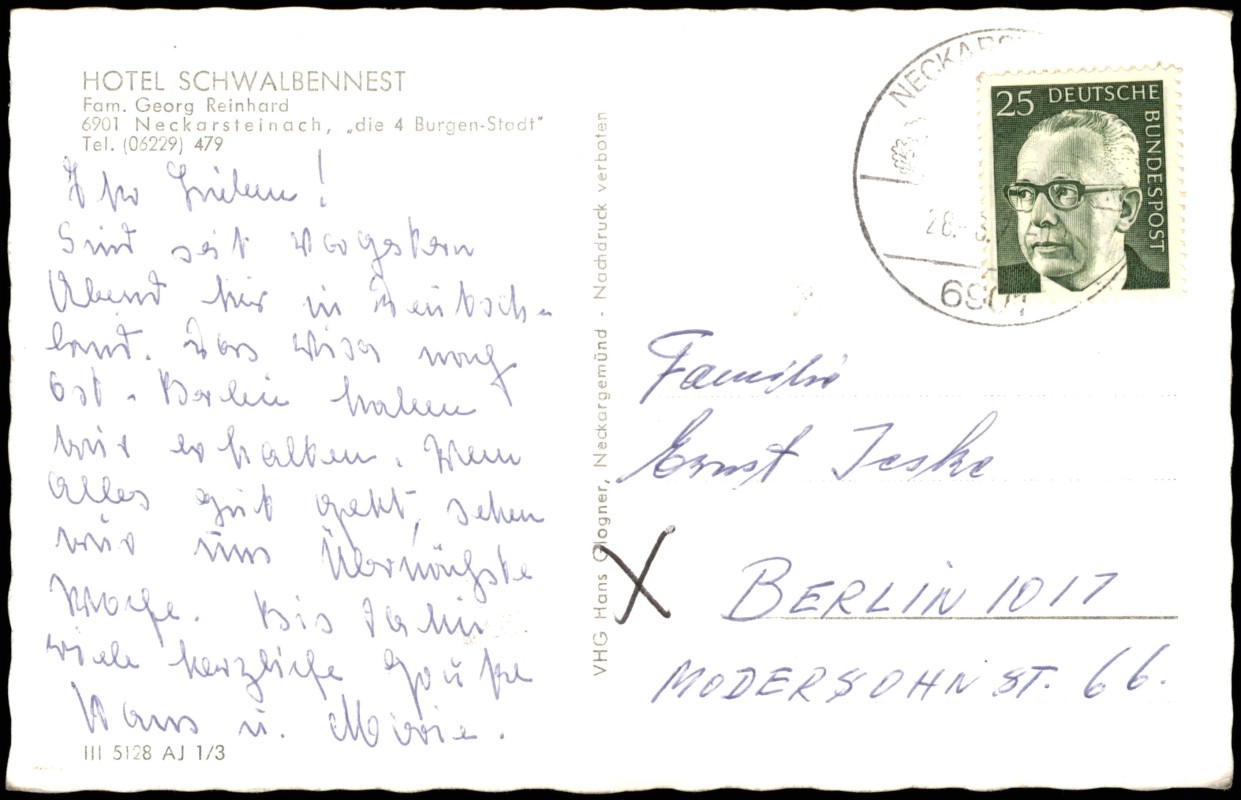 HOTEL SCHWALBENNEST
Fam. Georg Reinhard
6901 Neckarsteinach, „die 4 Burgen-Stadt"
Tel. (06229) 479
Ihr Lieben!
Sind seit vorgestern
Abend hier in Deutsch-
land. Das Visa nach
Ost-Berlin haben
wir erhalten. Wenn
alles gut geht, sehen
wir uns übernächste
Woche. Bis dahin
viele herzliche Grüße
Hans u. Marie.
III 5128 AJ 1/3
VHG Hans Glogner, Neckargemünd - Nachdruck verboten
25 DEUTSCHE
BUNDESPOST
6901
Familie
Ernst Jeske
X
BERLIN 1017
MODERSOHNST. 66.